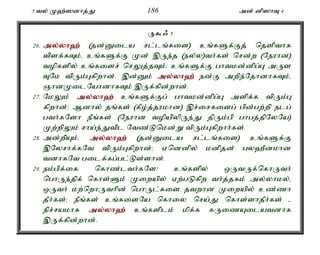 5 வல் முஹ்ஸனாத்து 186 அன் னிஸாவு 4
ருகூஃ 5
26. அல்லாஹ் (தன்னுடைய சட்டங்களை) உங்களுக்குத் தெளிவாக
விளக்கவும், உங்களுக்கு முன் இருந்த (நல்ல)வர்கள் சென்ற (நேரான)
வழிகளில் உங்களைச் செலுத்தவும், உங்களுக்கு பாவமன்னிப்பு அருள
வுமே விரும்புகிறான். இன்னும் அல்லாஹ் நன்கு அறிந்தோனாகவும்,
ஞானமுடையோனாகவும் இருக்கின்றான்.
27. மேலும் அல்லாஹ் உங்களுக்குப் பாவமன்னிப்பு அளிக்க விரும்பு
கிறான்; ஆனால் தங்கள் (கீழ்த்தரமான) இச்சைகளைப் பின்பற்றி நடப்
பவர்களோ நீங்கள் (நேரான வழியிலிருந்து திரும்பி பாபத்திலேயே)
முற்றிலும் சாய்ந்துவிட வேண்டுமென்று விரும்புகிறார்கள்.
28. அன்றியும், அல்லாஹ் (தன்னுடைய சட்டங்களை) உங்களுக்கு
இலேசாக்கவே விரும்புகிறான்; ஏனெனில் மனிதன் பலஹீனமான
வனாகவே படைக்கப்பட்டுள்ளான்.
29. நம்பிக்கை கொண்டவர்களே! உங்களில் ஒருவருக்கொருவர்
பொருந்திக் கொள்ளும் முறையில் ஏற்படுகிற வர்த்தகம் அல்லாமல்,
ஒருவர் மற்றொருவரின் பொருட்களை தவறான முறையில் உண்ணா
தீர்கள்; நீங்கள் உங்களையே கொலை செய்து கொள்ளாதீர்கள் -
நிச்சயமாக அல்லாஹ் உங்களிடம் மிக்க கருணையுடையவனாக
இருக்கின்றான்.